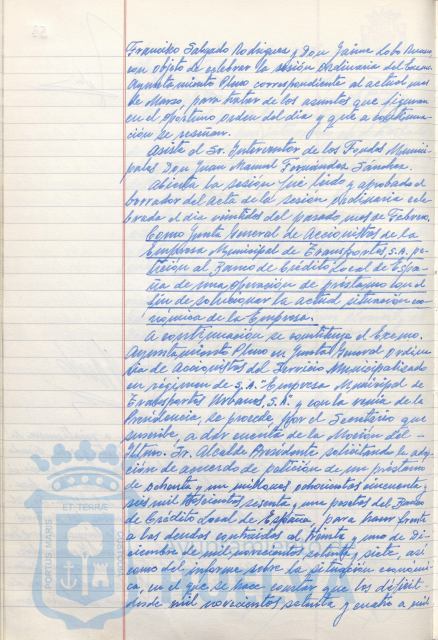 Francisko Salgado Rodriguez y Don Jaime Lobo
con objeto de celebrar la sesión Ordinaria del Excmo.
Ayuntamiento Pleno correspondiente al actual mes
de Marzo, para tratar de los asuntos que figuran
en el oportuno orden del día y que a continua-
ción se reseñan.
Asiste el Sr. Interventor de los Fondos Munici-
pales Don Juan Manuel Fernández Sánchez.
Abierta la sesión fue leido y aprobado el
borrador del acta de la sesión Ordinaria cele-
brada el día veintidos del pasado mes de Febrero.
Como Junta General de Accionistas de la
Empresa Municipal de Transportes, S.A. pe-
tición al Banco de Crédito Local de Espa-
ña de una operación de préstamo con el
fin de solucionar la actual situación eco-
nómica de la Empresa.
A continuación se constituye el Excmo.
Ayuntamiento Pleno en Junta General Ordina-
ria de Accionistas del Servicio Municipalizado
en régimen de S.A. "Empresa Municipal de
Transportes Urbanos, S.A." y con la venia de la
Presidencia, se procede, por el Secretario que
suscribe, a dar cuenta de la Moción del
Iltmo. Sr. Alcalde Presidente solicitando la adop-
ción de acuerdo de petición de un préstamo
de ochenta y un millones ochocientas cincuenta y
seis mil trescientas sesenta y una pesetas del Banco
de Crédito Local de España para hacer frente
a las deudas contraidas al treinta y uno de Di-
ciembre de mil novecientos setenta y siete, así
como del informe sobre la situación económi-
ca, en el que se hace constar que los déficit
desde mil novecientos setenta y cuatro a mil
PORTUS MARIS
ET TERRAE
CUSTODIA